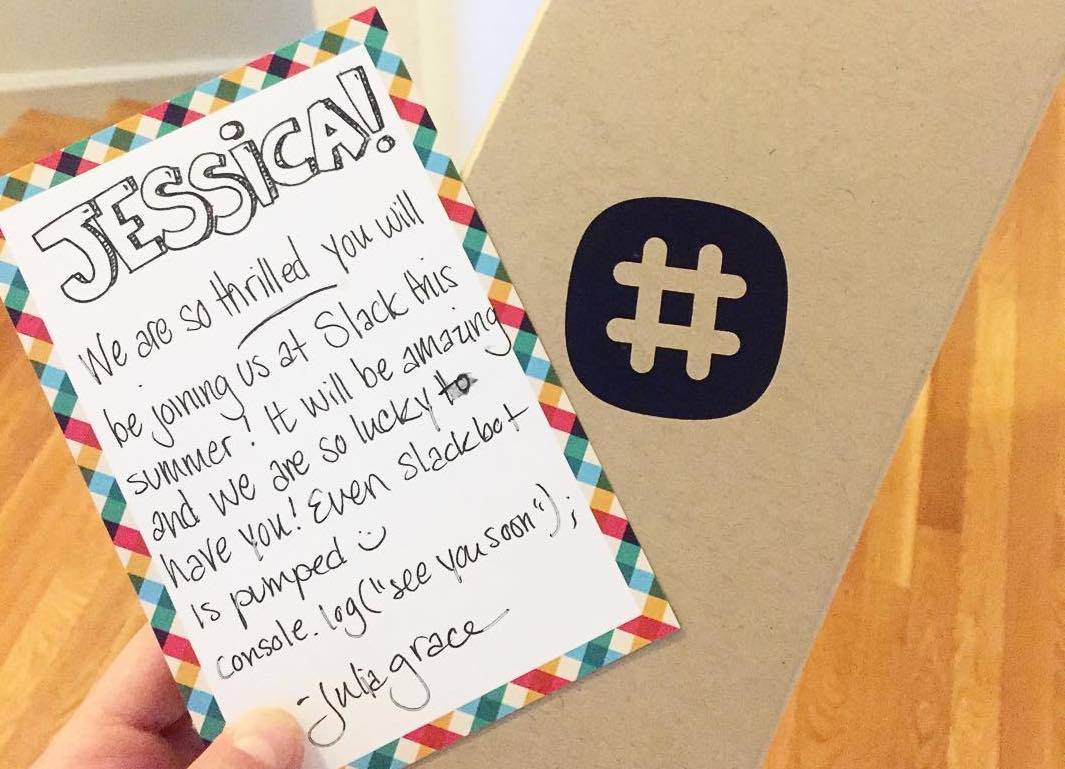 JESSiCA!
We are so thrilled you will
be joining us at Slack this
summer! It will be amazing
and we are so lucky to
have you! Even Slackbot
is pumped :)
console.log("see you soon");
-julia grace
#